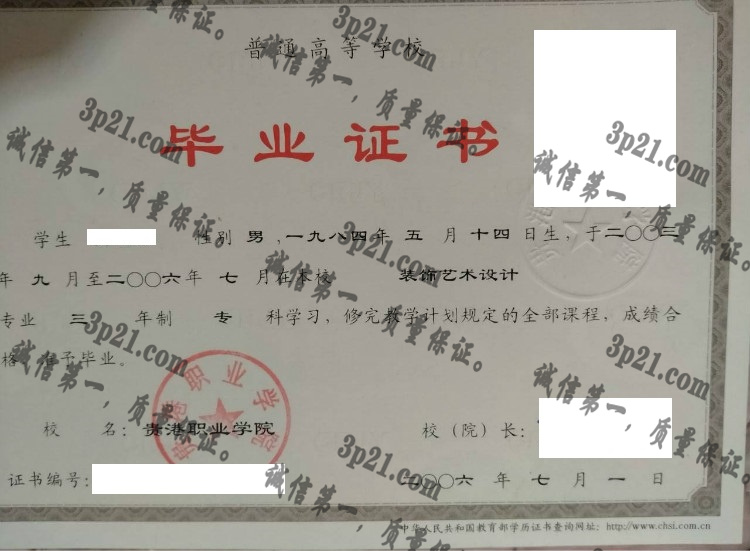 普通高等学校
毕业证书
学生 性别 男，一九八四年 五 月 十四 日生，于二〇〇三
年 九 月至二〇〇六年 七 月在本校 装饰艺术设计
专业 三 年制 专 科学习，修完教学计划规定的全部课程，成绩合
格，准予毕业。
贵港职业学院
校 名：贵港职业学院 校（院）长：
证书编号： 二〇〇六 年 七 月 一 日
中华人民共和国教育部学历证书查询网址：http://www.chsi.com.cn
质量保证。
3p21.com
诚信第一，质量保证。
3p21.com
诚信第一，质量保证。
3p21.com
诚信第一，质量保证。
3p21.com
诚信第一，质量保证。
3p21.com
诚信第一，质量保证。
3p21.com
诚信第一，质量保证。
3p21.com
诚信第一，质量保证。